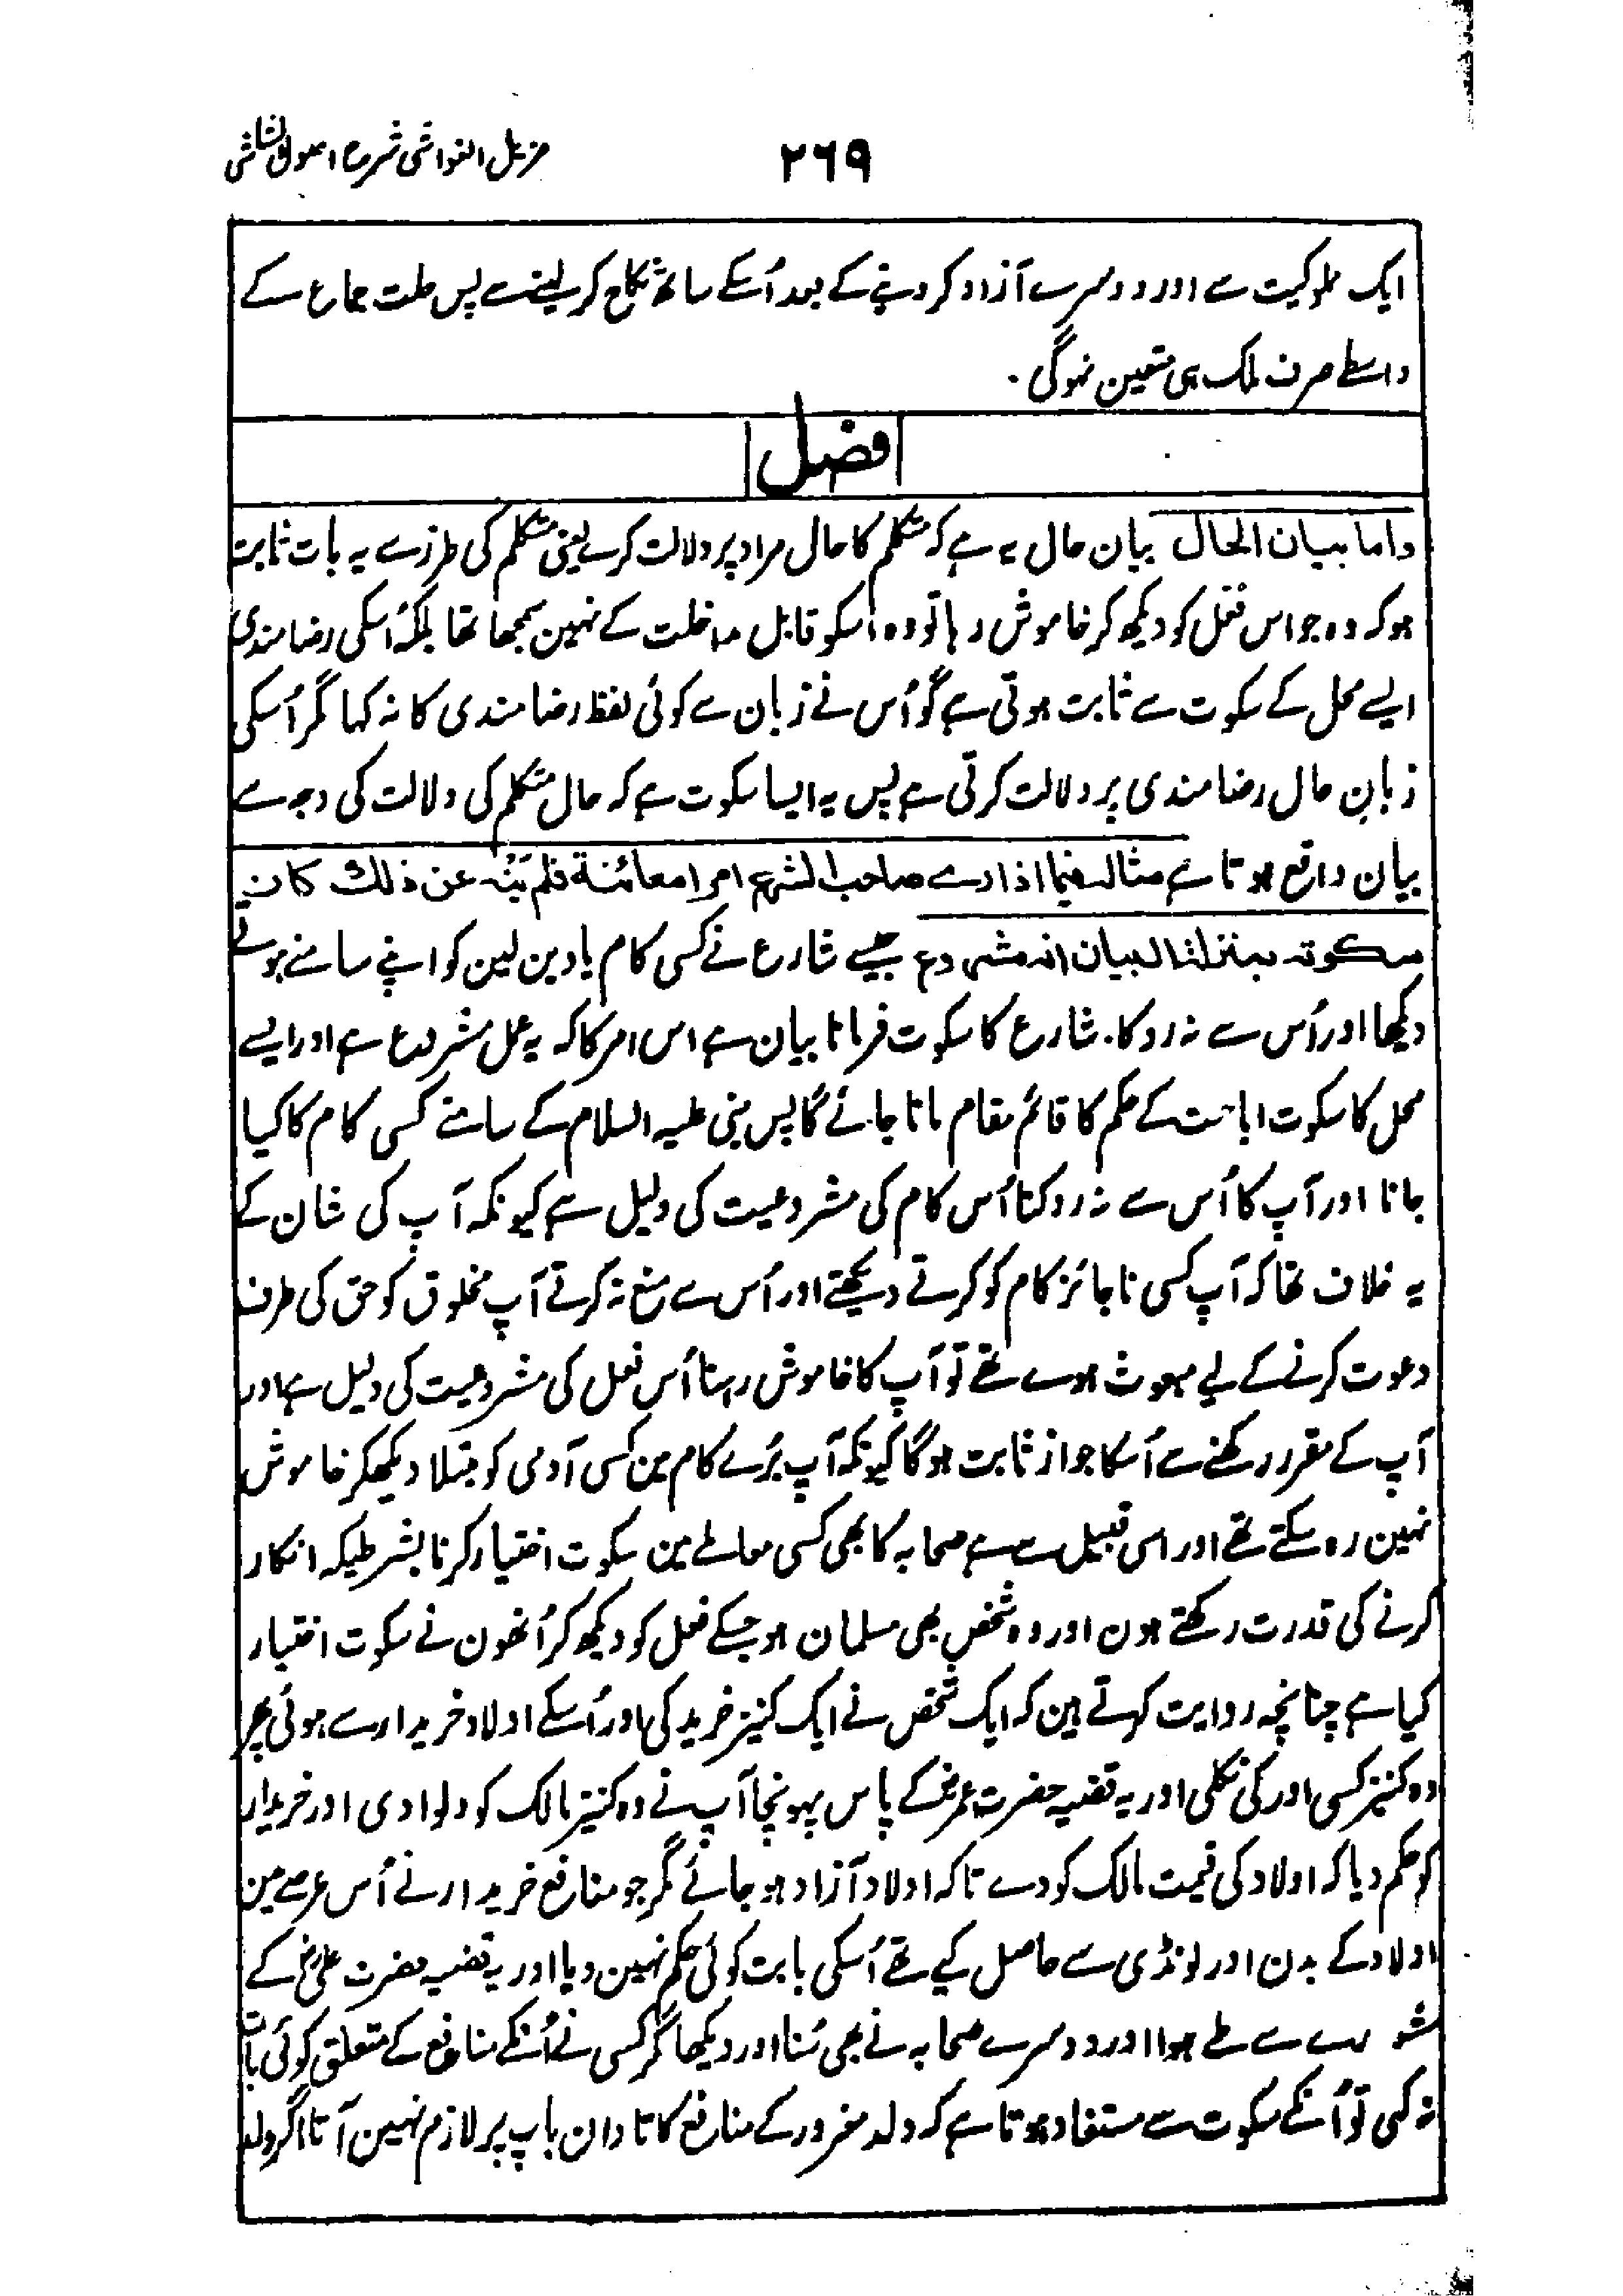 مزیل الغواشی شرح اصول الشاشی
۲۶۹
ایک مملوکیت سے اور دوسرے آزاد کر دینے کے بعد اُسکے ساتھ نکاح کر لینے سے پس حلت جماع کے
واسطے صرف ملک ہی متعین نہوگی ۔
فصل
واما بیان الحال بیان حال یہ ہے کہ متکلم کا حال مراد پر دلالت کرے یعنی متکلم کی طرز سے یہ بات ثابت
ہو کہ وہ جو اس فعل کو دیکھ کر خاموش رہا تو وہ اسکو قابل مداخلت کے نہین سمجھا تھا بلکہ اُسکی رضامندی
ایسے محل کے سکوت سے ثابت ہوتی ہے گو اُس نے زبان سے کوئی لفظ رضامندی کا نہ کہا مگر اُسکی
زبانِ حال رضامندی پر دلالت کرتی ہے پس یہ ایسا سکوت ہے کہ حال متکلم کی دلالت کی وجہ سے
بیان واقع ہوتا ہے مثالہ فیما اذا رے صاحب الشرع امرا معائنة فلم ینہ عن ذلک کان
سکوتہ بمنزلة البیان انہ مشروع جیسے شارع نے کسی کام یا دین لین کو اپنے سامنے ہوتے
دیکھا اور اُس سے نہ روکا۔ شارع کا سکوت فرمانا بیان ہے اس امر کا کہ یہ عمل مشروع ہے اور ایسے
محل کا سکوت اباحت کے حکم کا قائم مقام مانا جائے گا پس نبی علیہ السلام کے سامنے کسی کام کا کیا
جانا اور آپ کا اُس سے نہ روکنا اُس کام کی مشروعیت کی دلیل ہے کیونکہ آپ کی شان کے
یہ خلاف تھا کہ آپ کسی ناجائز کام کو کرتے دیکھتے اور اُس سے منع نہ کرتے آپ مخلوق کو حق کی طرف
دعوت کرنے کے لیے مبعوث ہوے تھے تو آپ کا خاموش رہنا اُس فعل کی مشروعیت کی دلیل ہے اور
آپ کے مقرر رکھنے سے اُسکا جواز ثابت ہوگا کیونکہ آپ بُرے کام مین کسی آدمی کو مبتلا دیکھکر خاموش
نہین رہ سکتے تھے اور اسی قبیل سے ہے صحابہ کا بھی کسی معاملے مین سکوت اختیار کرنا بشرطیکہ انکار
کرنے کی قدرت رکھتے ہون اور وہ شخص بھی مسلمان ہو جسکے فعل کو دیکھ کر اُنھون نے سکوت اختیار
کیا ہے چنانچہ روایت کہتے ہین کہ ایک شخص نے ایک کنیز خرید کی اور اُسکے اولاد خریدار سے ہوئی پھر
وہ کنیز کسی اور کی نکلی اور یہ قضیہ حضرت عمرؓ کے پاس پہونچا آپ نے وہ کنیز مالک کو دلوا دی اور خریدار
کو حکم دیا کہ اولاد کی قیمت مالک کو دے تاکہ اولاد آزاد ہو جائے مگر جو منافع خریدار نے اُس عرصے مین
اولاد کے بدن اور لونڈی سے حاصل کیے تھے اُسکی بابت کوئی حکم نہین دیا اور یہ قضیہ حضرت علیؓ کے
مشورے سے طے ہوا اور دوسرے صحابہ نے بھی سُنا اور دیکھا مگر کسی نے اُنکے منافع کے متعلق کوئی بات
نہ کہی تو اُنکے سکوت سے مستفاد ہوتا ہے کہ ولد مغرور کے منافع کا تاوان باپ پر لازم نہین آتا اگر ولد